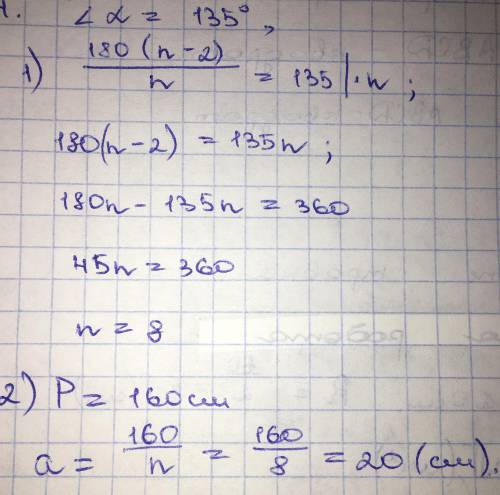 1. ∠α = 135°,
1) 180(n-2)/n = 135 |·n ;
180(n-2) = 135n ;
180n - 135n = 360
45n = 360
n = 8
2) P = 160 см
a = 160/n = 160/8 = 20 (см).